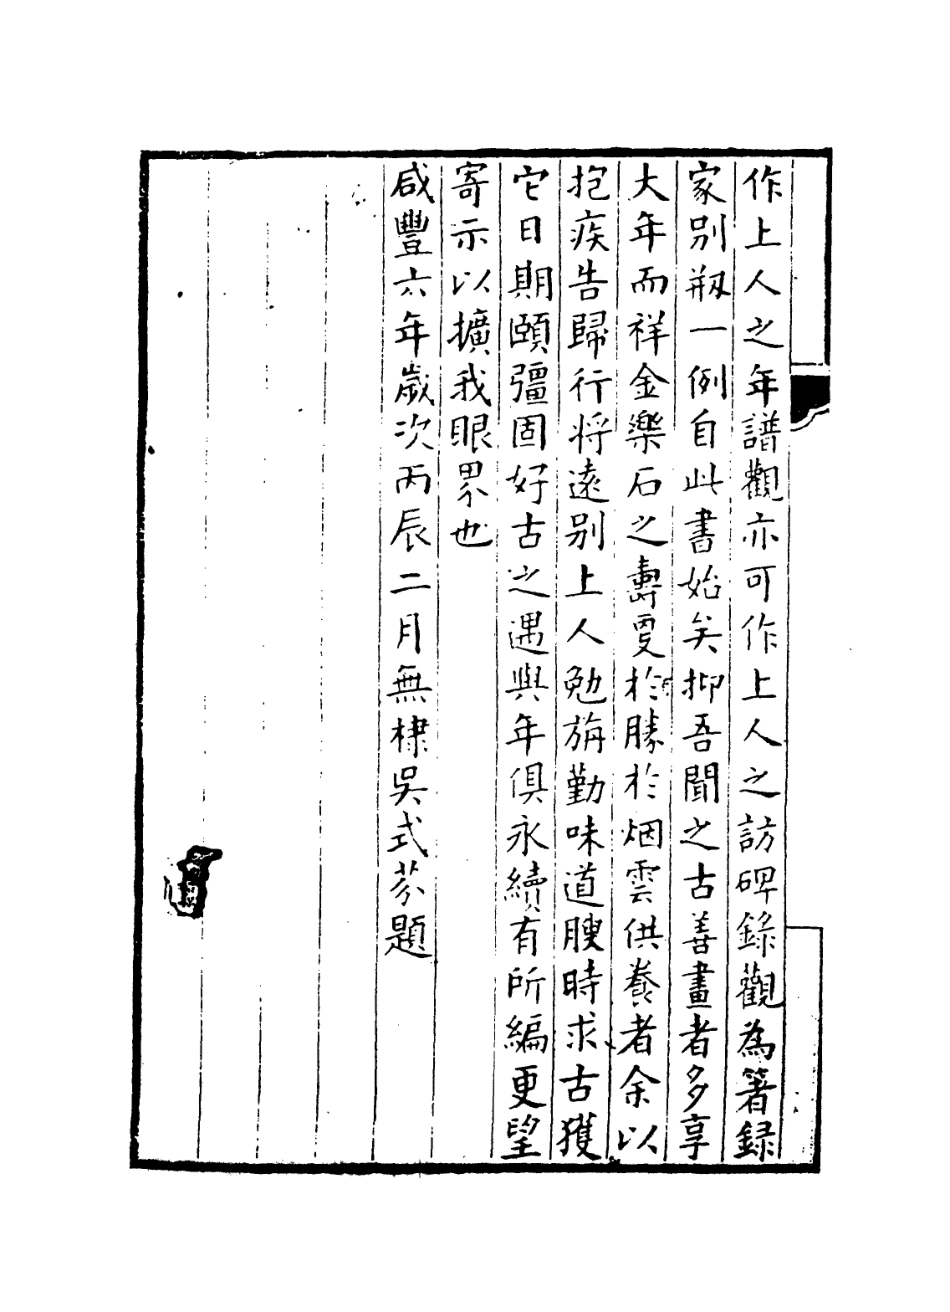 作上人之年譜觀亦可作上人之訪碑錄觀為箸録
家別剏一例自此書始矣抑吾聞之古善畫者多享
大年而祥金樂石之壽於勝於烟雲供養者余以
抱疾告歸行將遠別上人勉旃勤味道腴時求古獲
它日期頤彊固好古之遇與年俱永續有所編更望
寄示以擴我眼界也
咸豐六年歲次丙辰二月無棣吳式芬題